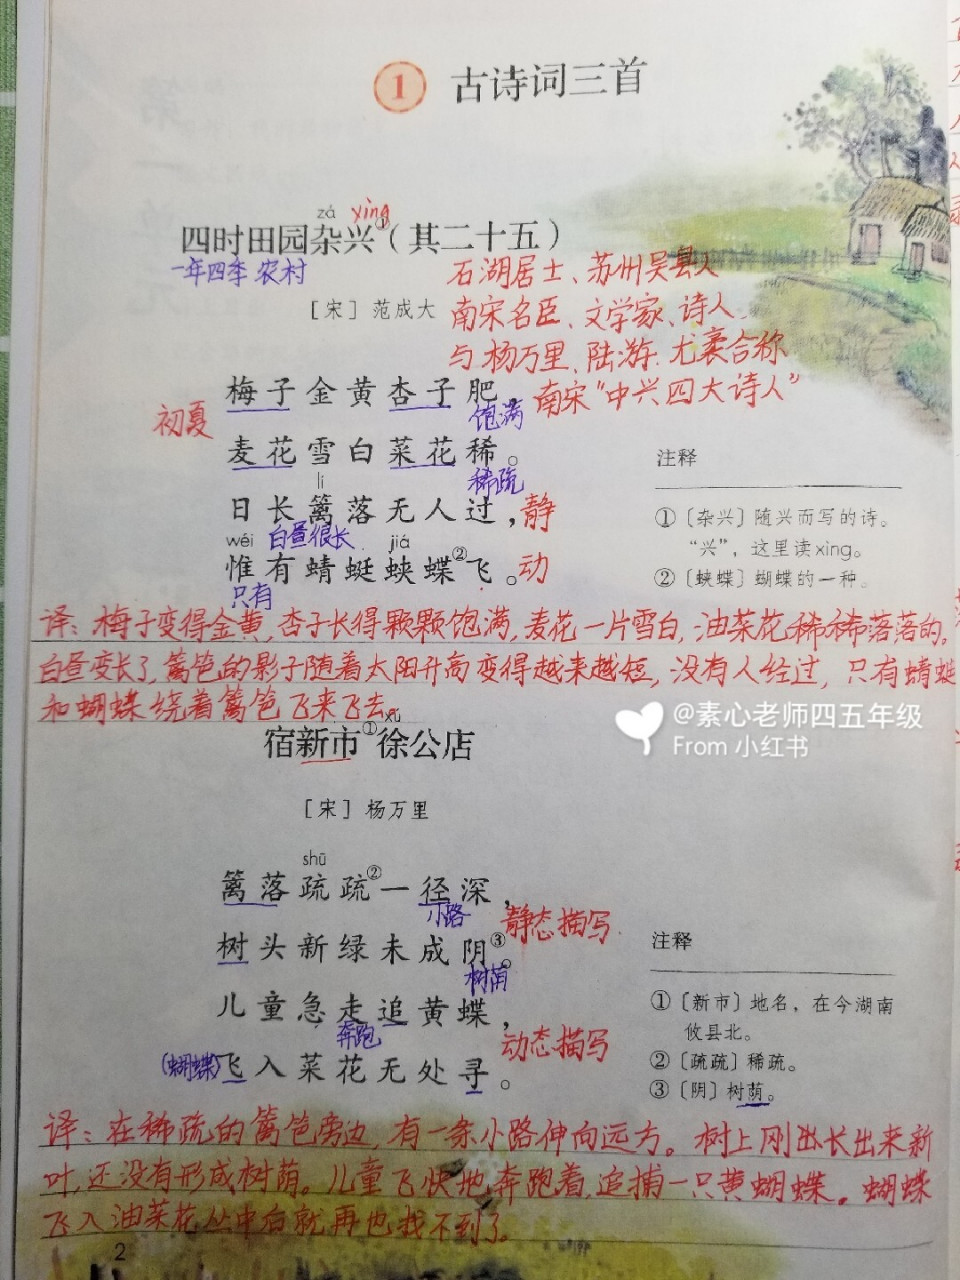 1 古诗词三首
zá xìng
四时田园杂兴①（其二十五）
一年四季 农村
石湖居士、苏州吴县人
［宋］范成大
南宋名臣、文学家、诗人
与杨万里、陆游、尤袤合称
南宋“中兴四大诗人”
梅子金黄杏子肥，
饱满
初夏
麦花雪白菜花稀。
稀疏
lí
日长篱落无人过，静
白昼很长
wéi jiá
惟有蜻蜓蛱蝶②飞。动
只有
注释
①〔杂兴〕随兴而写的诗。
“兴”，这里读xìng。
②〔蛱蝶〕蝴蝶的一种。
译：梅子变得金黄，杏子长得颗颗饱满，麦花一片雪白，油菜花稀稀落落的。
白昼变长了，篱笆的影子随着太阳升高变得越来越短，没有人经过，只有蜻蜓
和蝴蝶绕着篱笆飞来飞去。
xú
宿新市①徐公店
@素心老师四五年级
From 小红书
［宋］杨万里
shū
篱落疏疏②一径深，
小路
静态描写
树头新绿未成阴③。
树荫
儿童急走追黄蝶，
奔跑
动态描写
(蝴蝶)飞入菜花无处寻。
注释
①〔新市〕地名，在今湖南
攸县北。
②〔疏疏〕稀疏。
③〔阴〕树荫。
译：在稀疏的篱笆旁边，有一条小路伸向远方。树上刚出长出来新
叶，还没有形成树荫。儿童飞快地奔跑着，追捕一只黄蝴蝶。蝴蝶
飞入油菜花丛中后就再也找不到了。
2